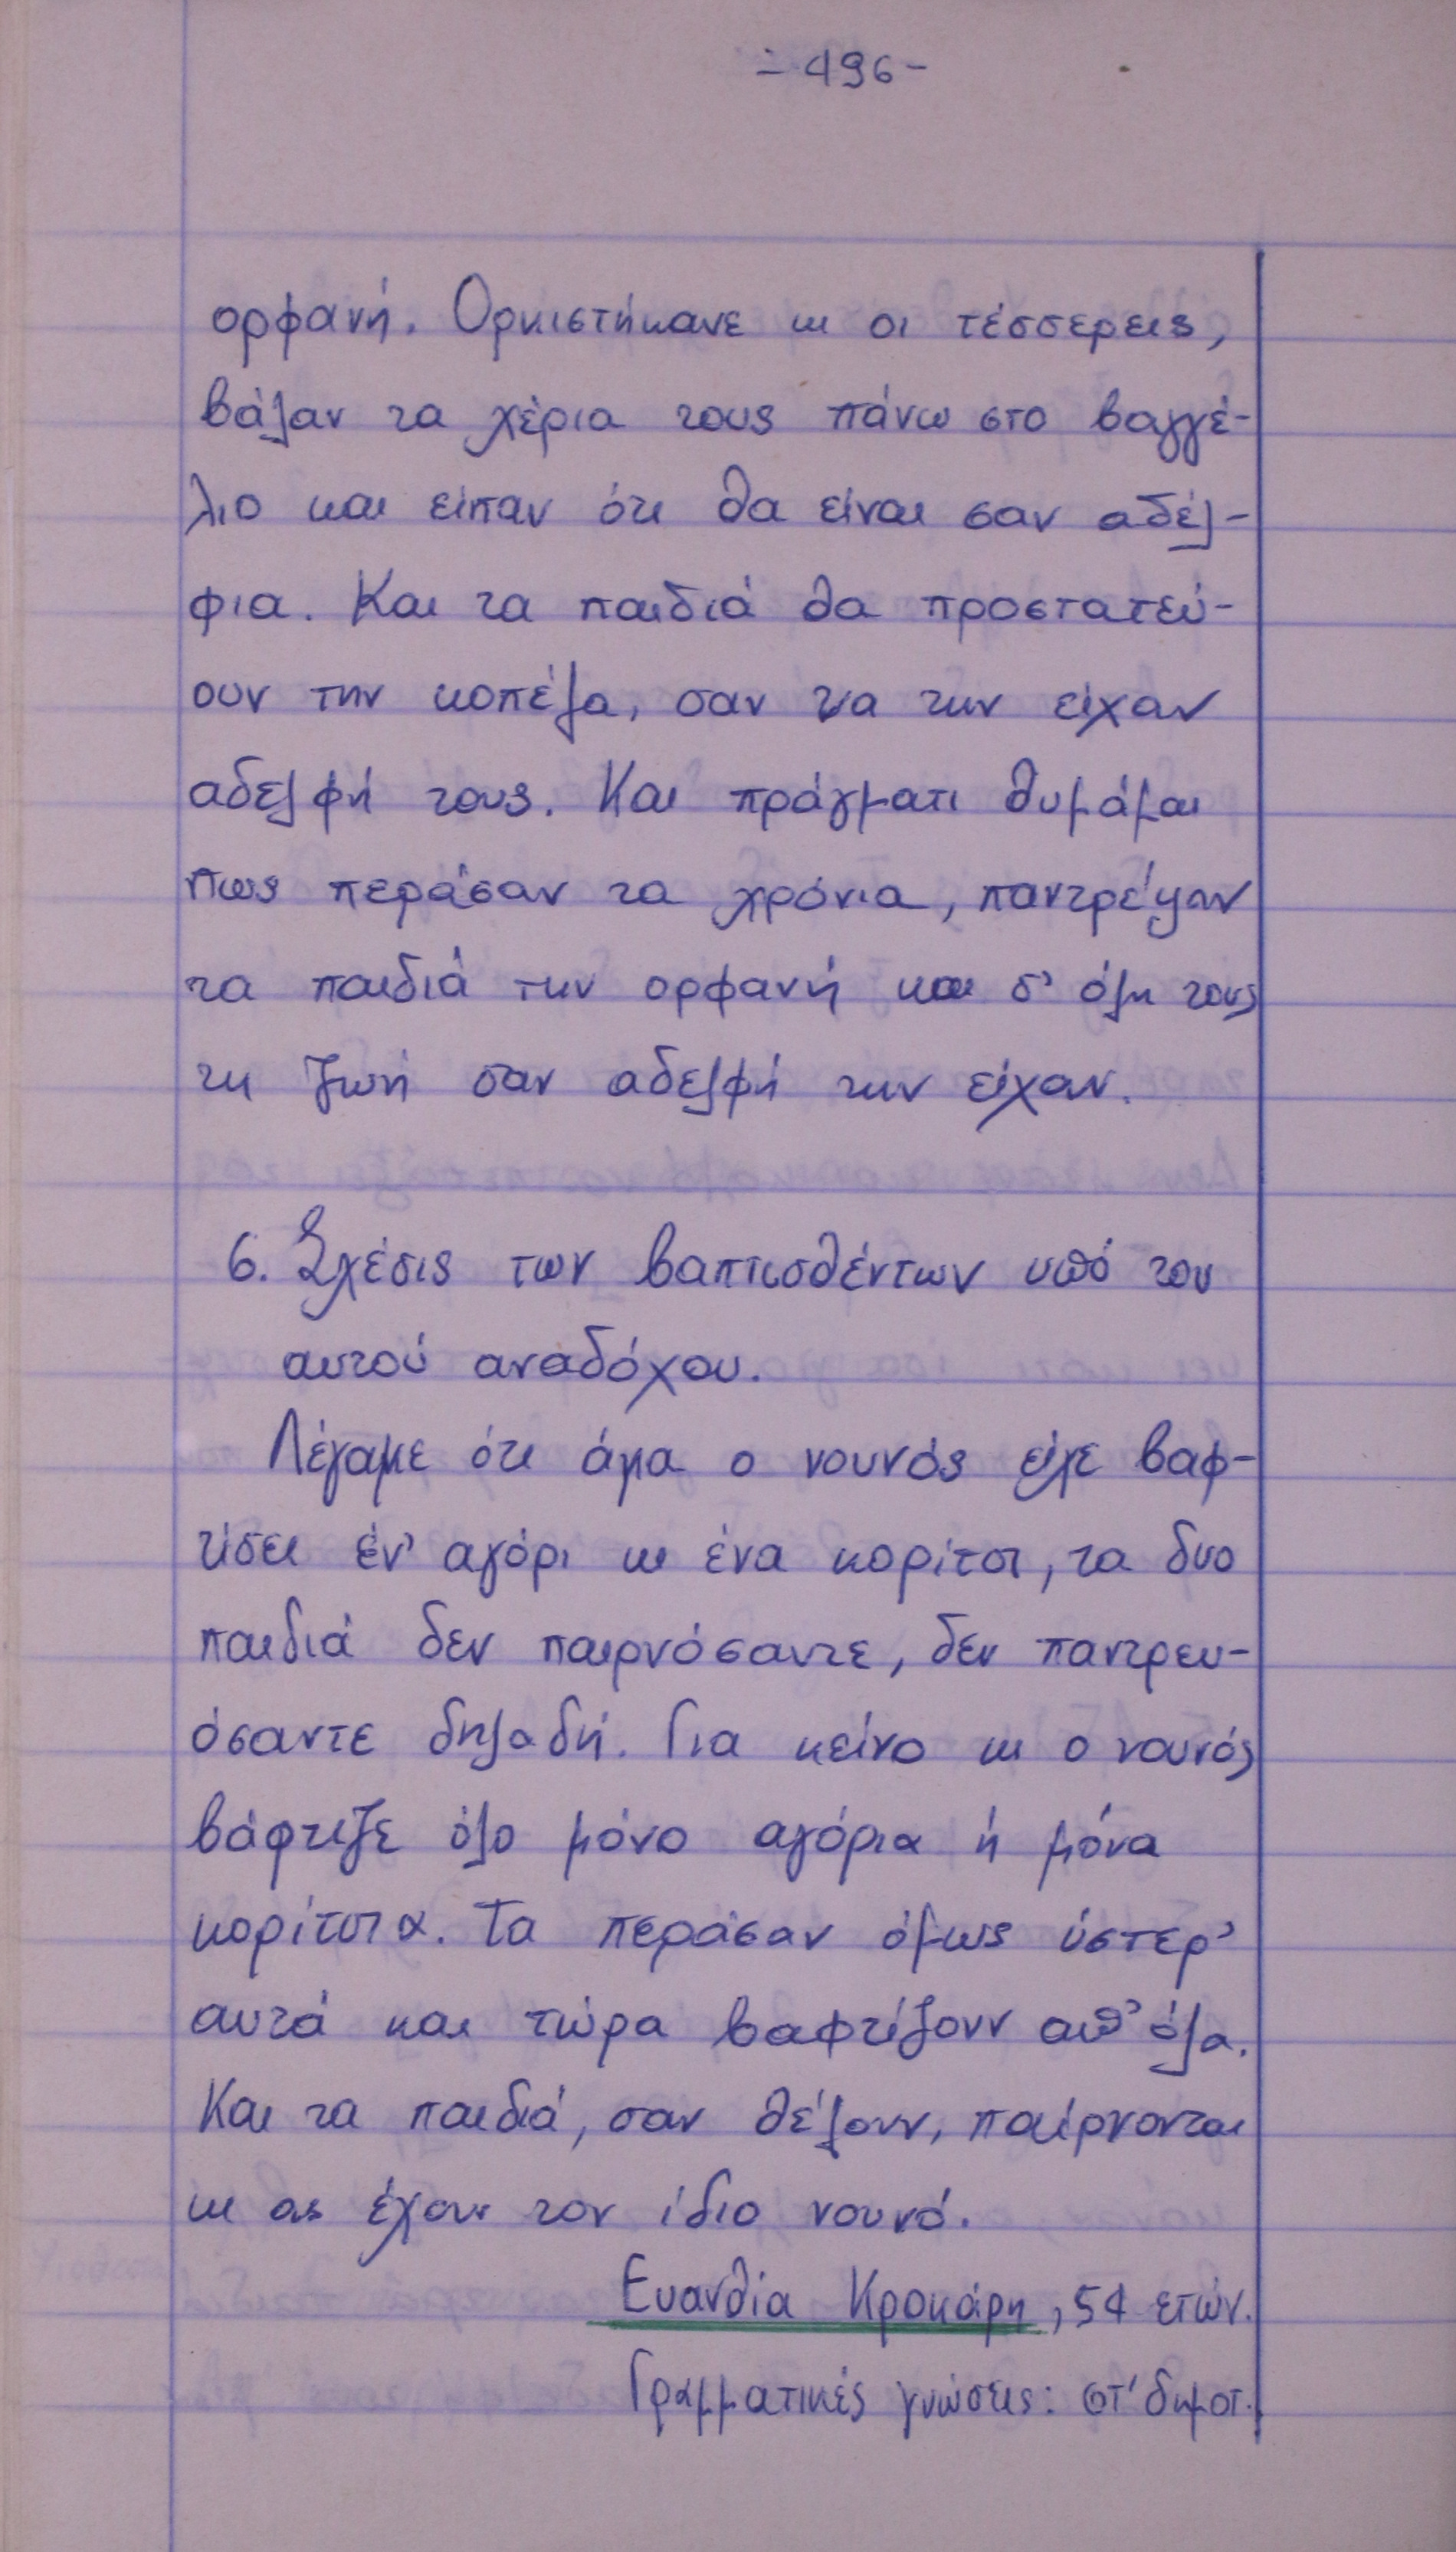 - 496 -
ορφανή. Ορκιστήκανε κι οι τέσσερεις,
βάλαν τα χέρια τους πάνω στο βαγγέ-
λιο και είπαν ότι θα είναι σαν αδέλ-
φια. Και τα παιδιά θα προστατεύ-
ουν την κοπέλα, σαν να την είχαν
αδελφή τους. Και πράγματι θυμάμαι
πως περάσαν τα χρόνια, παντρέψαν
τα παιδιά την ορφανή και σ' όλη τους
τη ζωή σαν αδελφή την είχαν.
6. Σχέσις των βαπτισθέντων υπό του
αυτού αναδόχου.
Λέγαμε ότι άμα ο νουνός είχε βαφ-
τίσει έν' αγόρι κι ένα κορίτσι, τα δυο
παιδιά δεν παιρνόσαντε, δεν παντρευ-
όσαντε δηλαδή. Για κείνο κι ο νουνός
βάφτιζε όλο μόνο αγόρια ή μόνα
κορίτσια. Τα περάσαν όμως ύστερ'
αυτά και τώρα βαφτίζουν απ' όλα.
Και τα παιδιά, σαν θέλουν, παίρνονται
κι ας έχουν τον ίδιο νουνό.
Ευανθία Κροκάρη, 54 ετών.
Γραμματικές γνώσεις: στ' δημοτ.